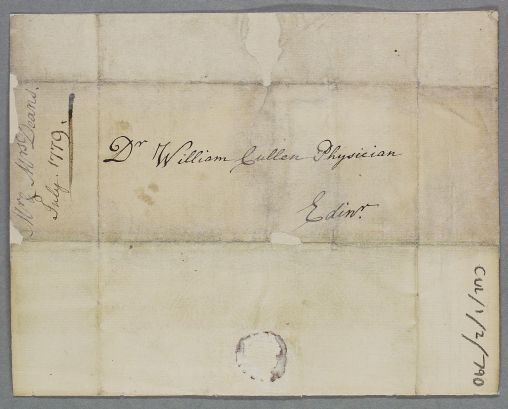 Dr William Cullen Physician
Edinr.
Mr & Mrs Deans.
July. 1779.
CUL/1/2/790